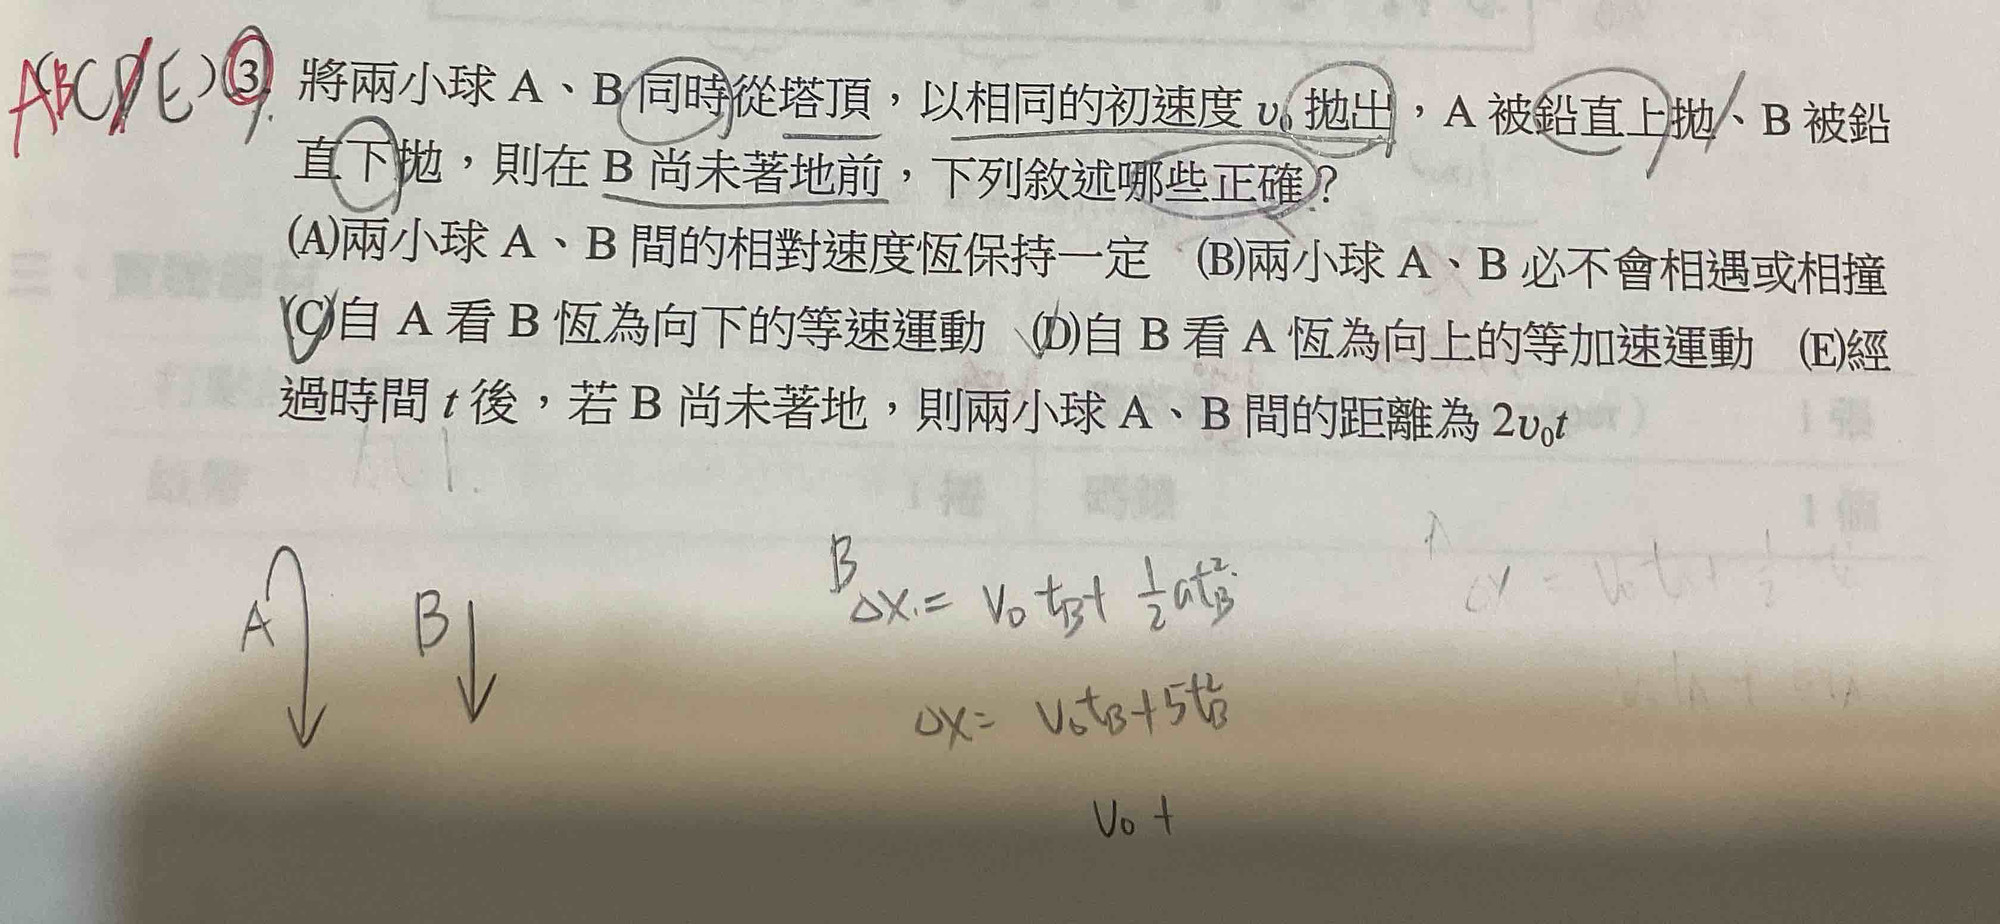 ABCDE)3. 將兩小球 A、B 同時從塔頂，以相同的初速度 v₀ 拋出，A 被鉛直上拋、B 被鉛
直下拋，則在 B 尚未著地前，下列敘述哪些正確？
(A)兩小球 A、B 間的相對速度恆保持一定 (B)兩小球 A、B 必不會相遇或相撞
(C)自 A 看 B 恆為向下的等速運動 (D)自 B 看 A 恆為向上的等加速運動 (E)經
過時間 t 後，若 B 尚未著地，則兩小球 A、B 間的距離為 2v₀t
A B
B
Δx = v₀t_B + ½at_B²
Δx = v₀t_B + 5t_B²
v₀ +